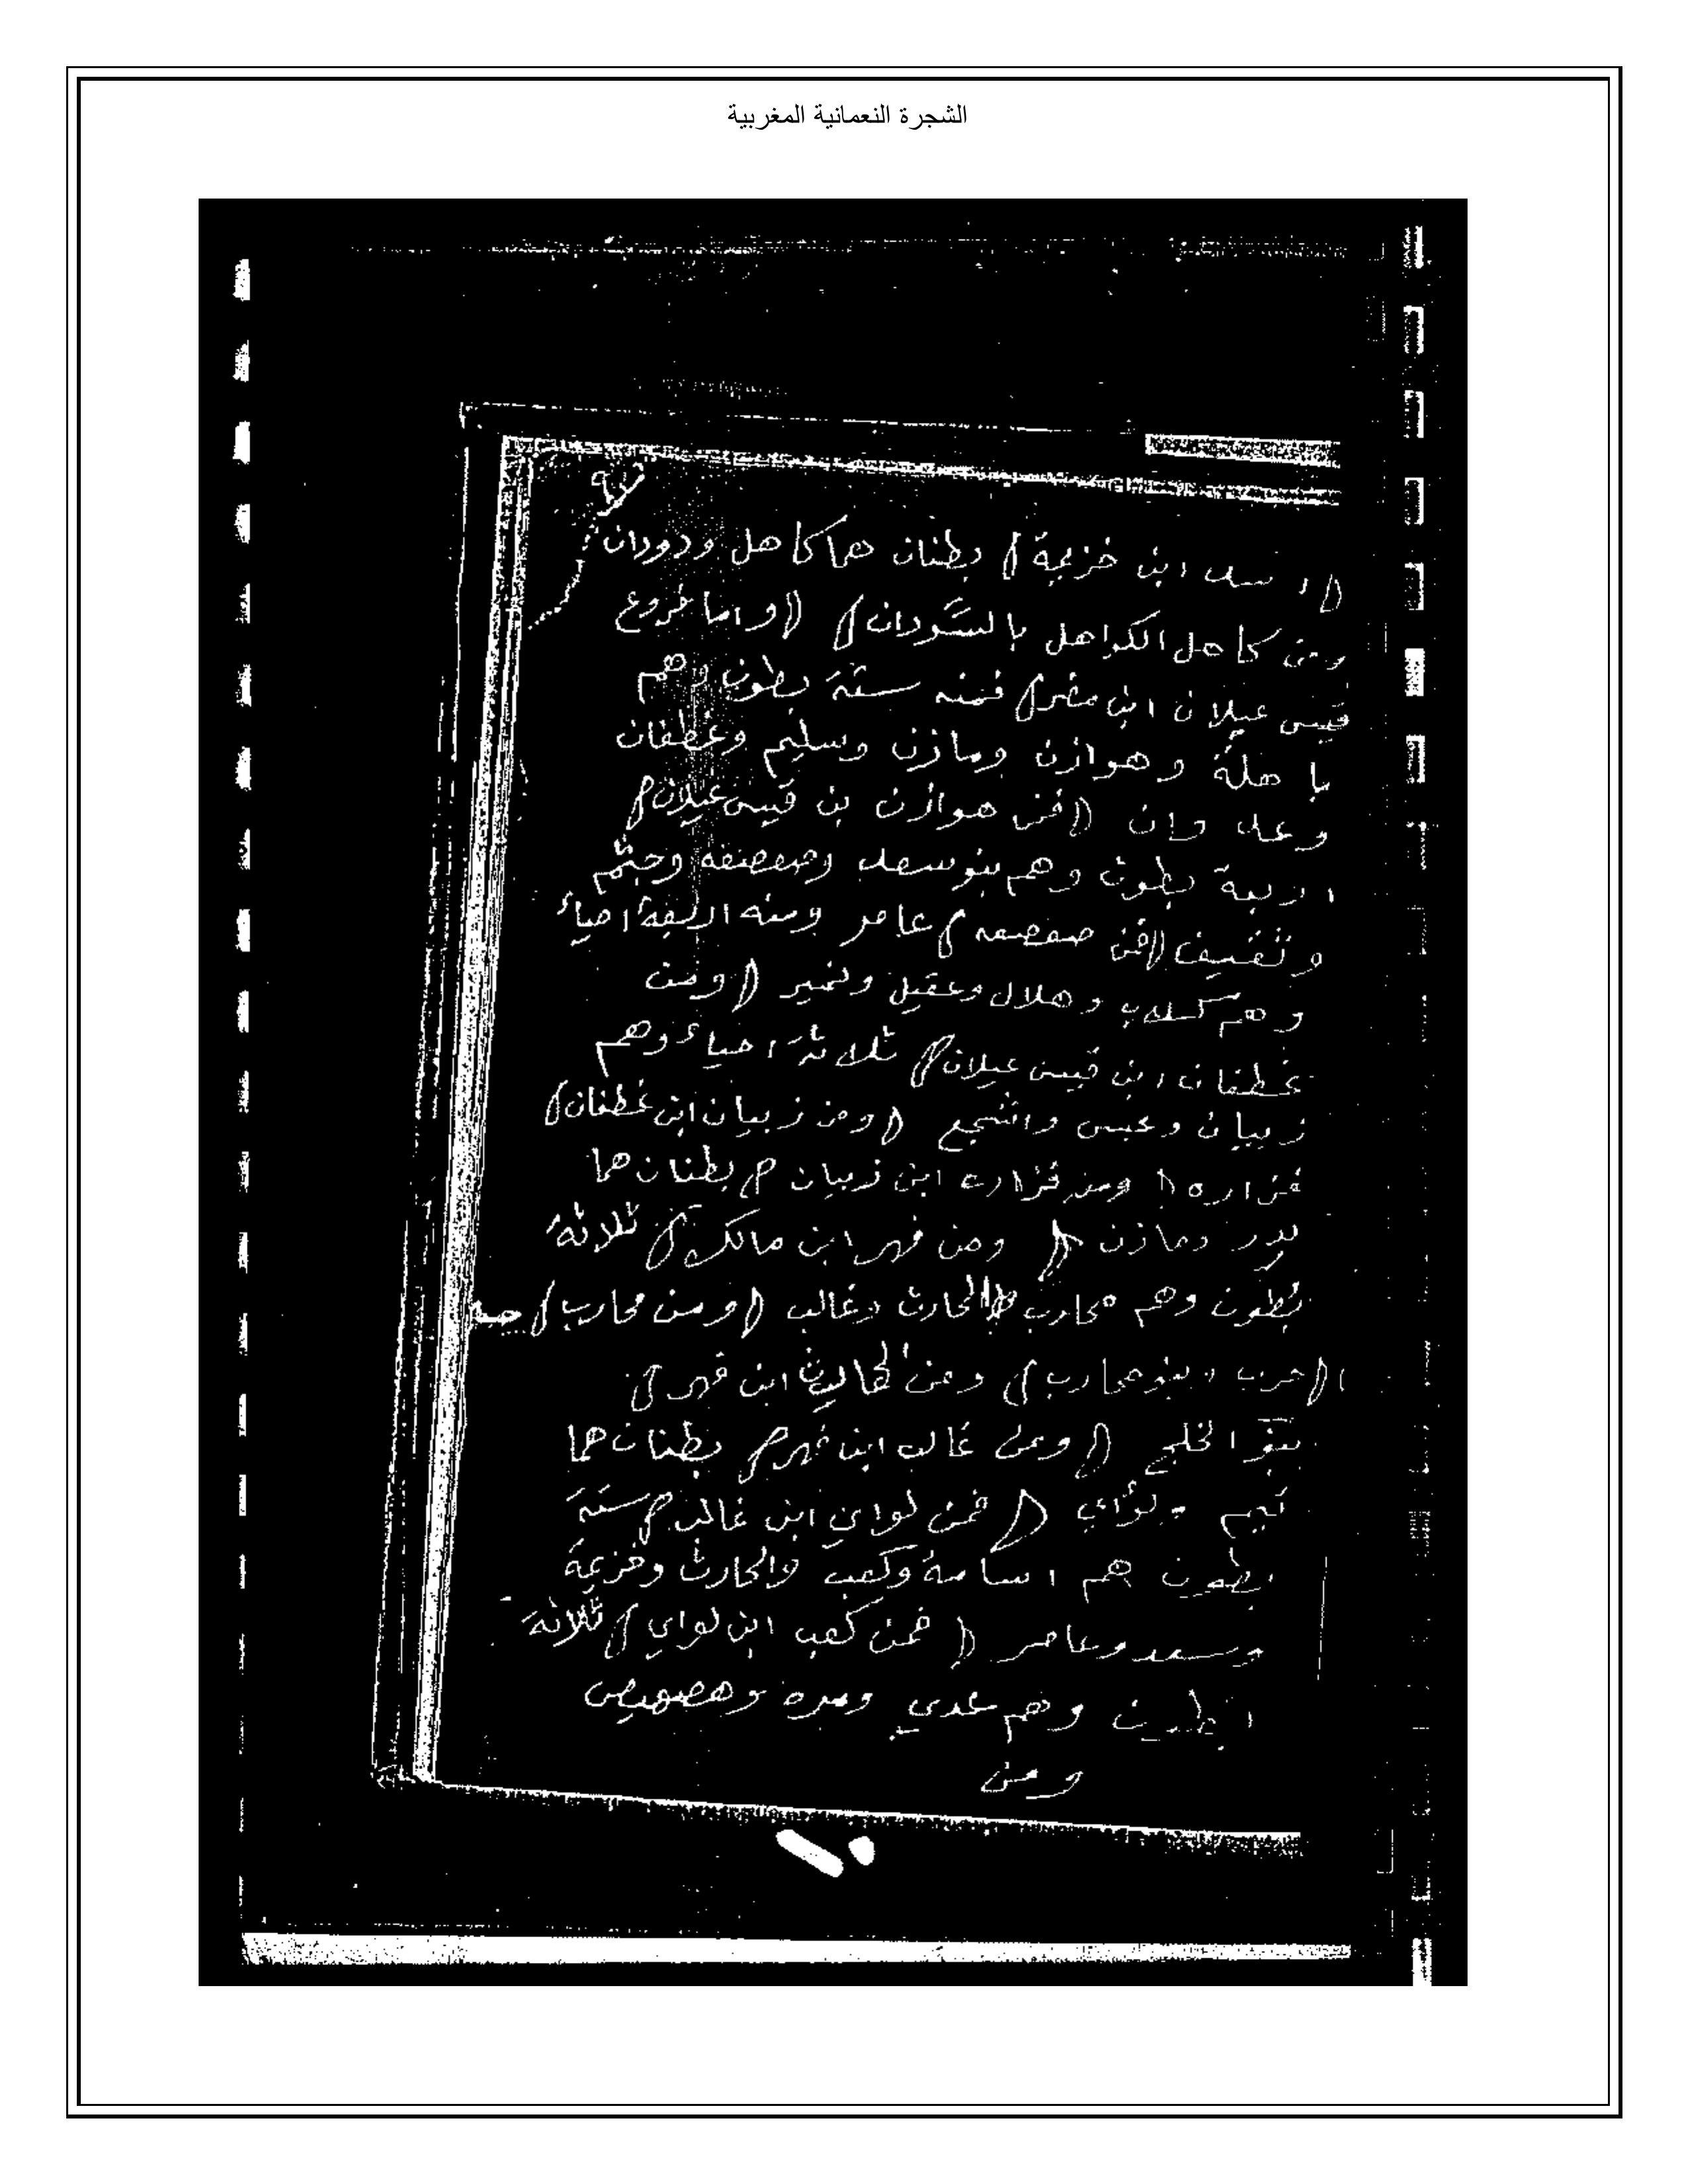 الشجرة النعمانية المغربية
( اسد ابن خزيمة ) بطنان هما كاهل ودودان
ومن كاهل الكواهل بالسَّودان ) ( واما فروع
قيس عيلان ابن مضر ) فمنه ستة بطون وهم
با هلة وهوازن ومازن وسليم وغطفان
وعدوان ( فمن هوازن بن قيس عيلان )
اربعة بطون وهم بنو سعد وصعصعه وجشم
وثقيف ( فمن صعصعه ) عامر ومنه اربعة احياء
وهم وهلال وعقيل ونمير ( ومن
غطفان ابن قيس عيلان ) ثلاثة احياء وهم
زبيان وعبس واشجع ( ومن زبيان ابن غطفان )
فزاره ( ومن فزاره ابن زبيان ) بطنان هما
بدر ومازن ( ومن فهر ابن مالك ) ثلاثة
بطون وهم محارب والحارث وغالب ( ومن محارب )
الحرب وبنو محارب ) ومن الحارث ابن فهر )
بنو الخلج ( ومن غالب ابن فهر ) بطنان هما
تيم ولؤاي ( فمن لواي ابن غالب ) ستة
بطون هم اسامة وكعب والحارث وخزيمة
وسعد وعامر ( فمن كعب ابن لواي ) ثلاثة
ابطون وهم عدي ومره وهصهيص
ومن